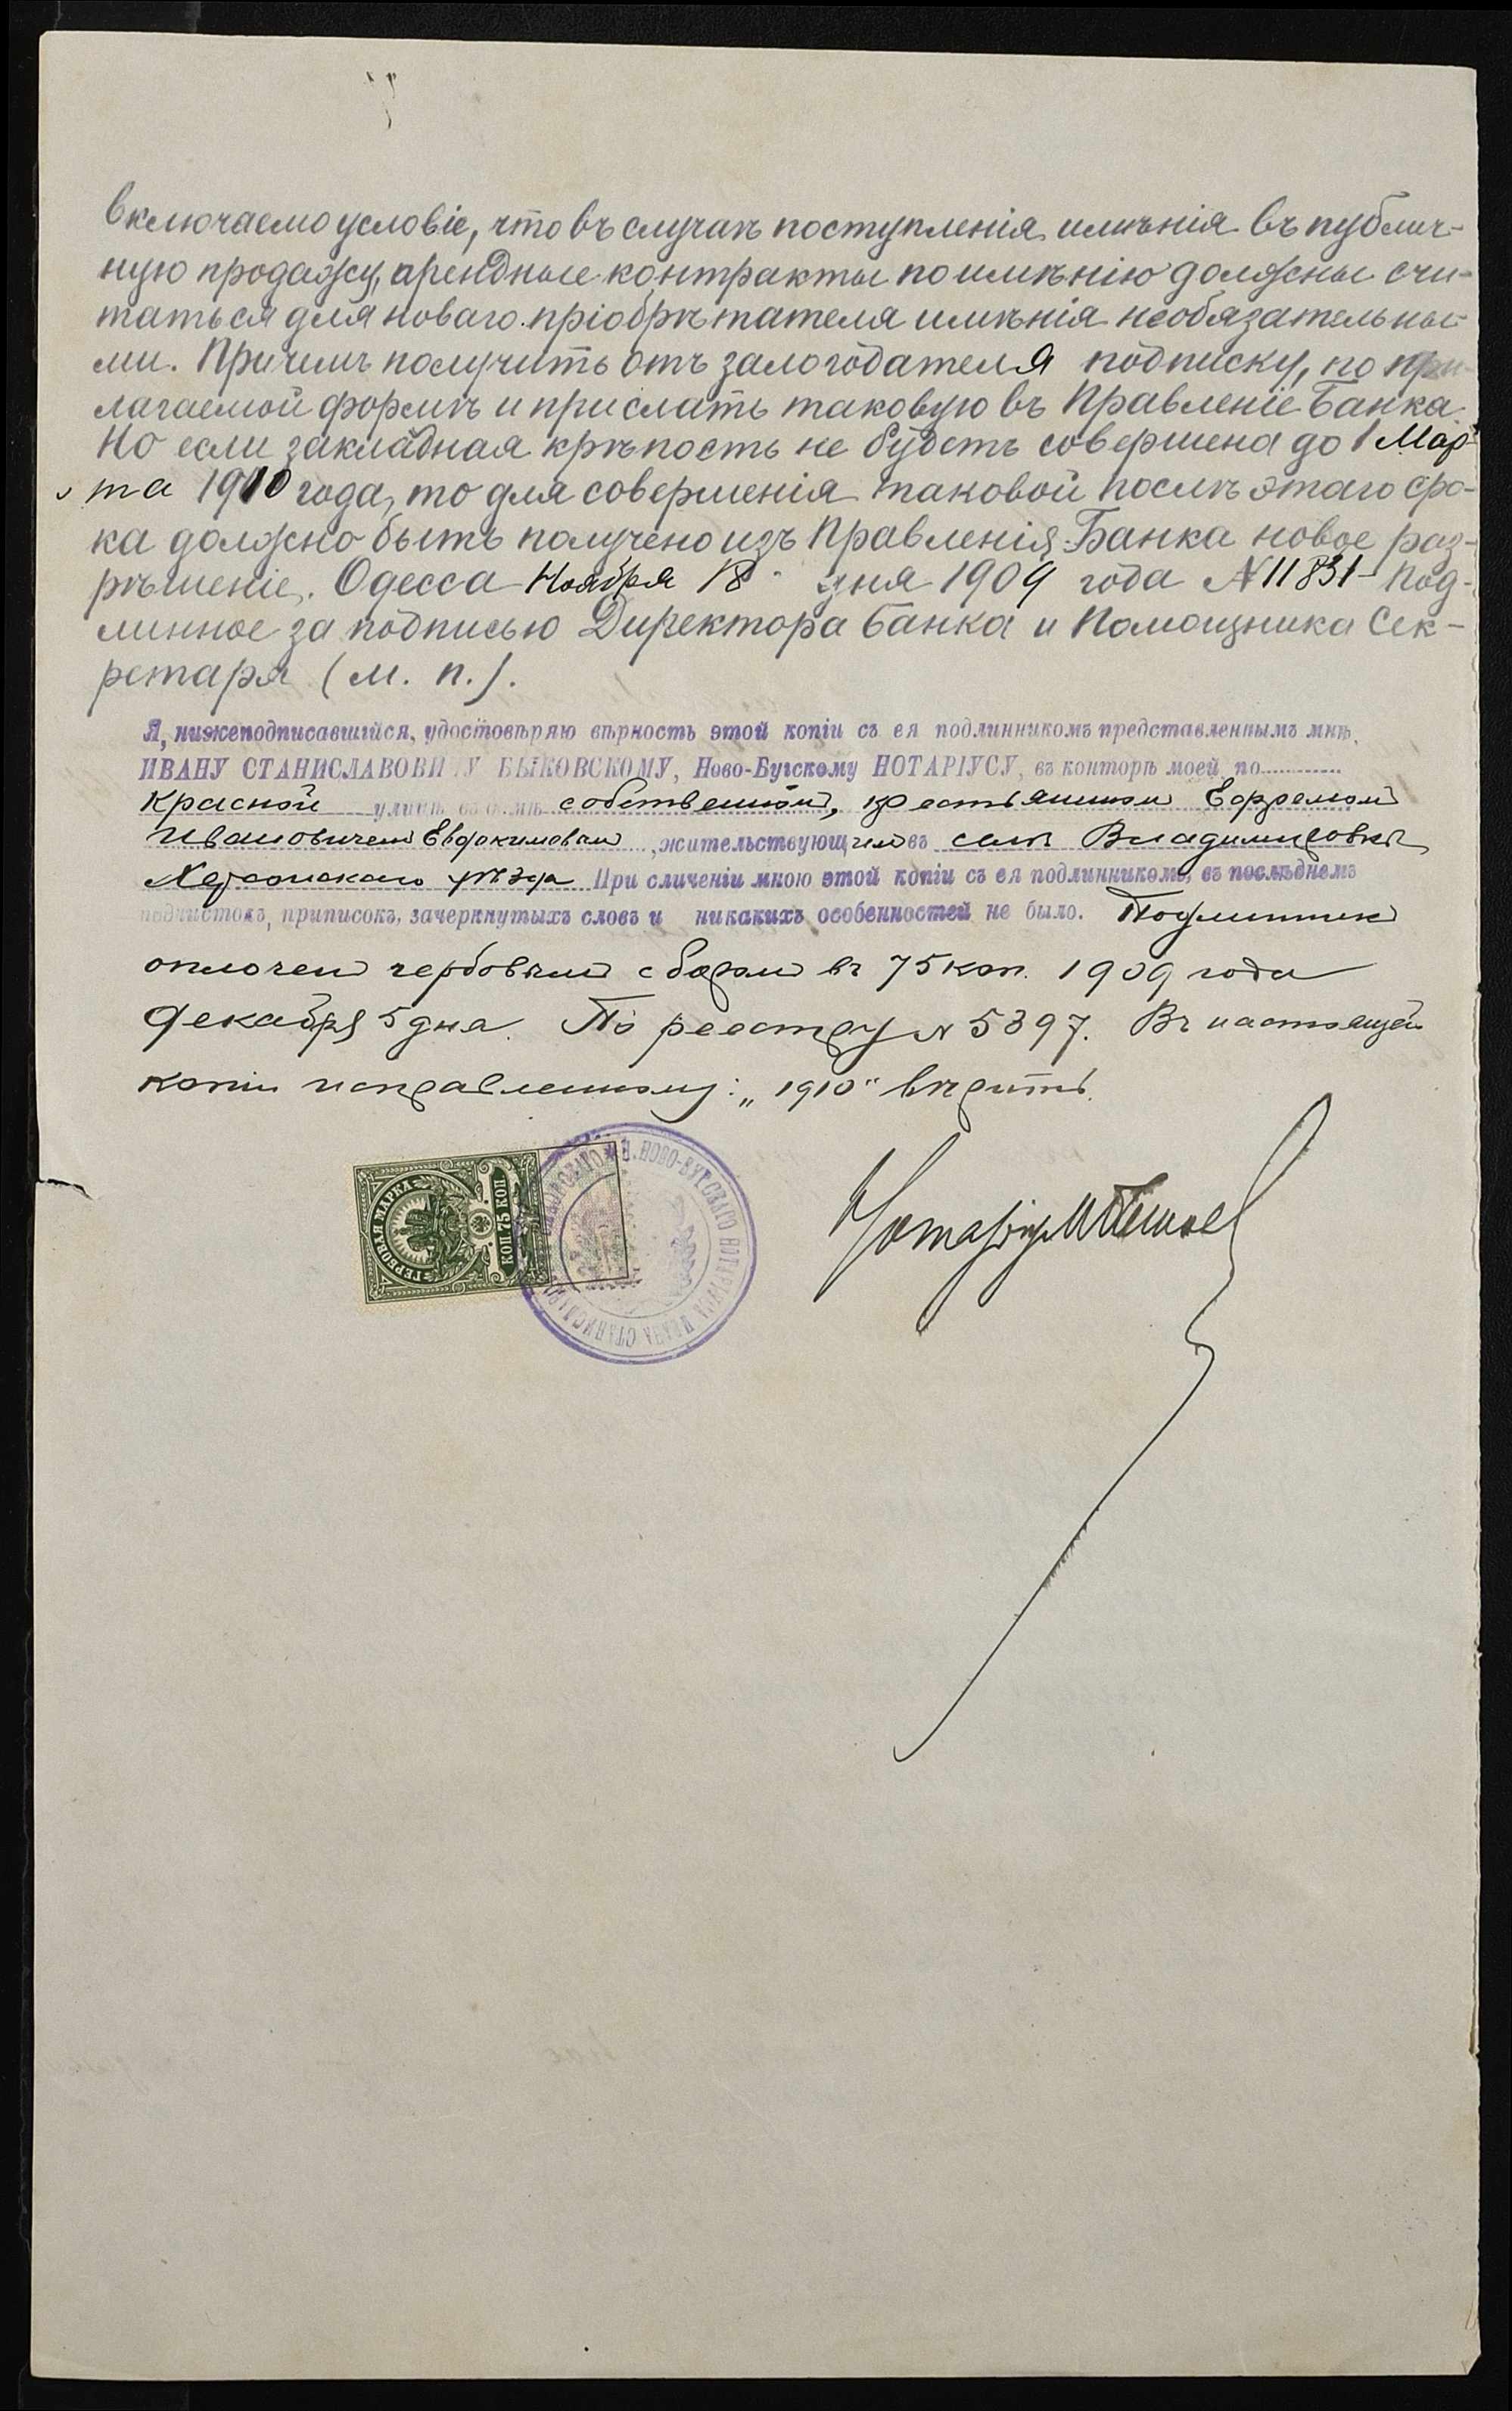 включаемо условіе, что въ случаѣ поступленія имѣнія въ публич-
ную продажу, арендные контракты по имѣнію должны счи-
таться для новаго пріобрѣтателя имѣнія необязательны-
ми. Причемъ получить отъ залогодателя подписку, по при-
лагаемой формѣ и прислать таковую въ Правленіе Банка.
Но если закладная крѣпость не будетъ совершена до 1 Мар-
та 1910 года, то для совершенія таковой послѣ этаго сро-
ка должно быть получено изъ Правленія Банка новое раз-
рѣшеніе. Одесса Ноября 18 дня 1909 года N 11831 Под-
линное за подписью Директора Банка и Помощника Сек-
ретаря (м. п.).
Я, нижеподписавшійся, удостовѣряю вѣрность этой копіи съ ея подлинникомъ представленнымъ мнѣ,
ИВАНУ СТАНИСЛАВОВИЧУ БЫКОВСКОМУ, Ново-Бугскому НОТАРІУСУ, въ конторѣ моей по
Красной улицѣ въ домѣ собственном, крестьянином Ефремом
Ивановичем Евдокимовым, жительствующим въ селѣ Владимировкѣ
Херсонскаго уѣзда При сличеніи мною этой копіи съ ея подлинникомъ, въ послѣднемъ
подчистокъ, приписокъ, зачеркнутыхъ словъ и никакихъ особенностей не было. Подлинник
оплочен гербовым сбором въ 75 коп. 1909 года
Декабря 5 дня. По реестру N 5397. Въ настоящей
копіи исправленному: „1910" вѣрить.
Нотаріус
ГЕРБОВАЯ МАРКА
КОП 75 КОП
Н. НОВО-БУГСКАГО НОТАРІУСА ИВАНА СТАНИСЛАВ